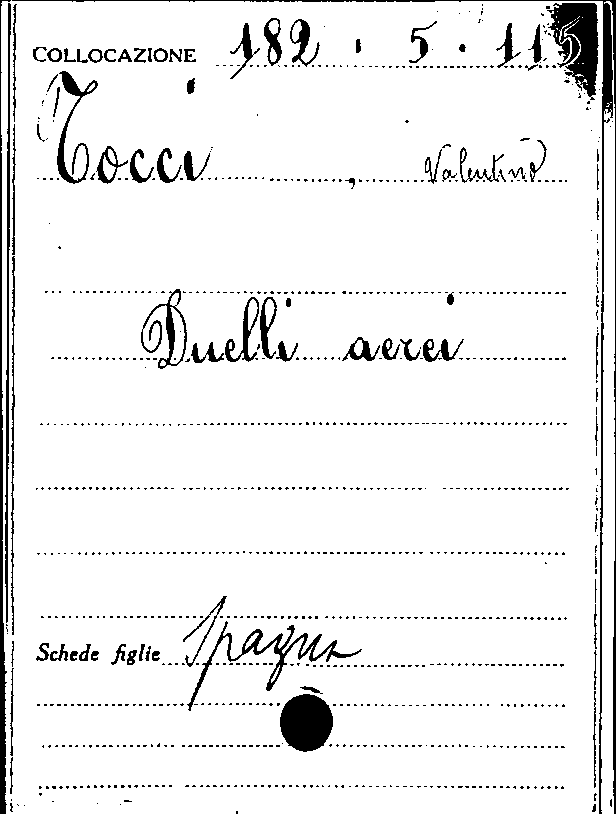 COLLOCAZIONE 182 . 5 . 115
Tocci , Valentino
Duelli aerei
Schede figlie Spagna